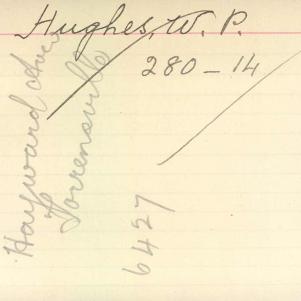 Hughes, W. P.
280-14
Hayward Ave
Torrensville
6427